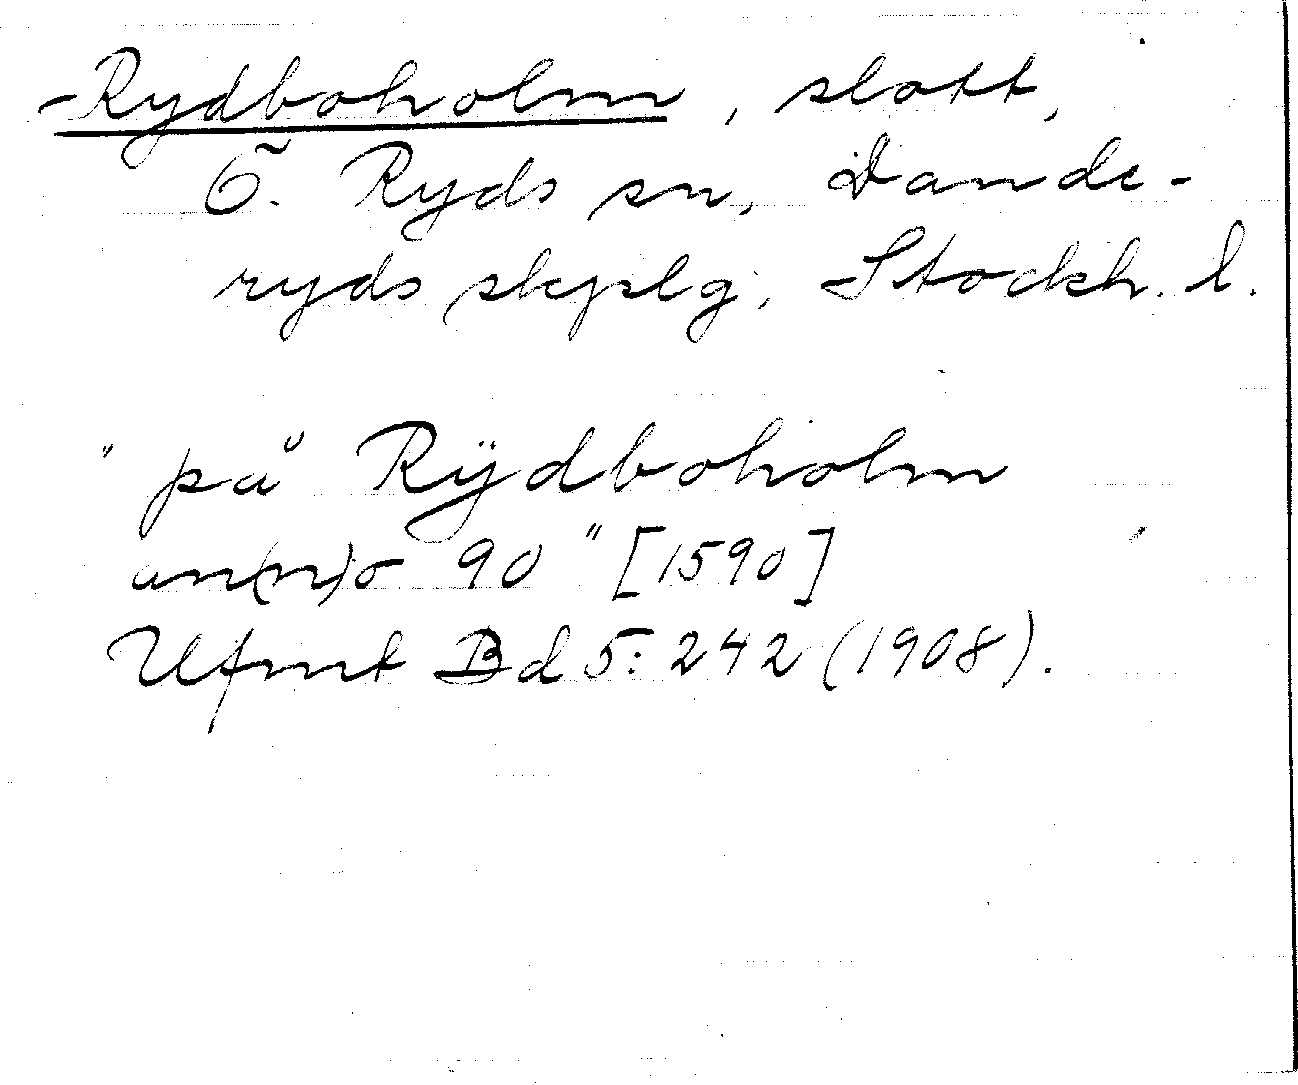 Rydboholm, slott,
Ö. Ryds sn, Dande-
ryds skplg, Stockh. l.
"på Rÿdboholm
an(n)o 90" [1590]
Ufmt Bd 5: 242 (1908).